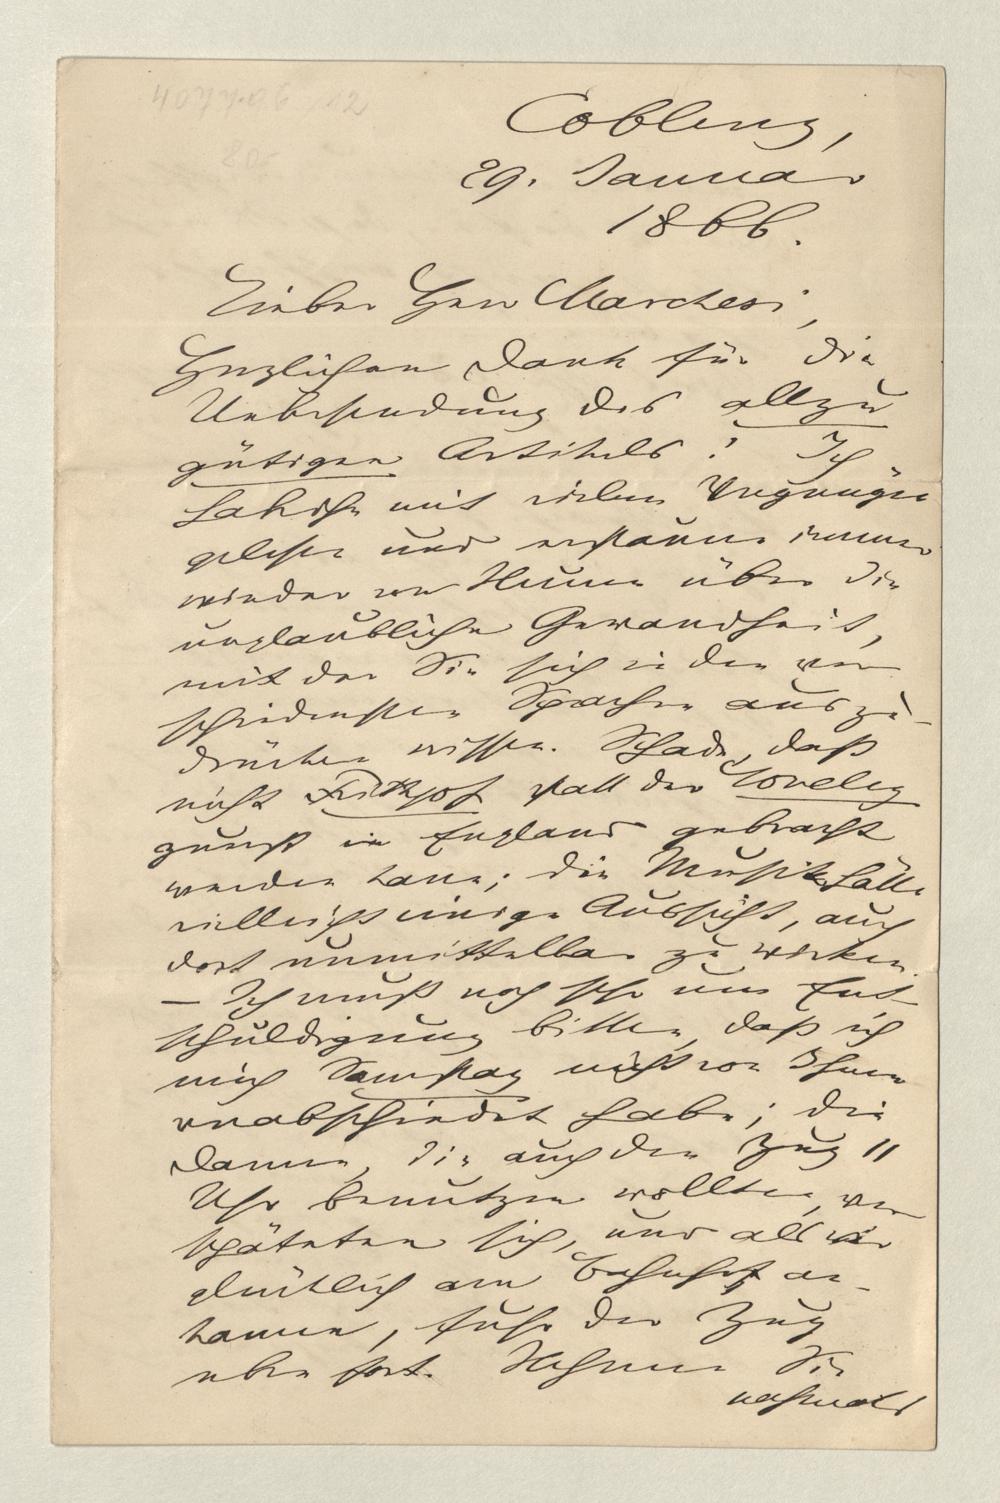 Coblenz,
29. Januar
1866.
Lieber Herr Marchesi,
Herzlichen Dank für die
Uebersendung des allzu
gütigen Artikels! Ich
hab ihn mit vielem Vergnügen
gelesen und erstaune immer
wieder von Neuem über die
unglaubliche Gewandheit,
mit der Sie sich in den ver
schiedensten Sprachen auszu-
drücken wissen. Schade, daß
nicht Frithjof statt der Loreley
zuerst in England gebracht
werden kann; die Musik hätte
vielleicht einige Aussicht, auch
dort unmittelbar zu wirken.
– Ich muß noch sehr um Ent-
schuldigung bitten, daß ich
mich Samstag nicht von Ihnen
verabschiedet habe; die
Damen, die auch den Zug 11
Uhr benutzen wollten, ver
späteten sich, und als wir
glücklich am Bahnhof an-
kamen, fuhr der Zug
eben fort. Nehmen Sie
nochmals